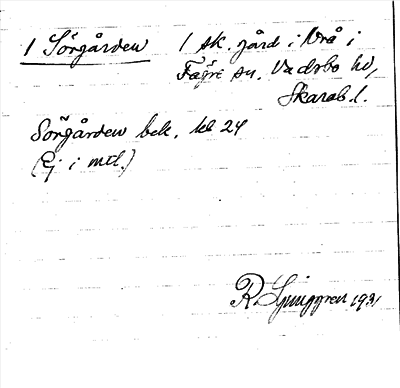 1 Sörgården 1 sk. gård i Vrå i
Fägre sn, Vadsbo hd,
Skarab. l.
Sörgården bek. kbl 24
(Ej i mtl.)
R. Ljunggren 1931